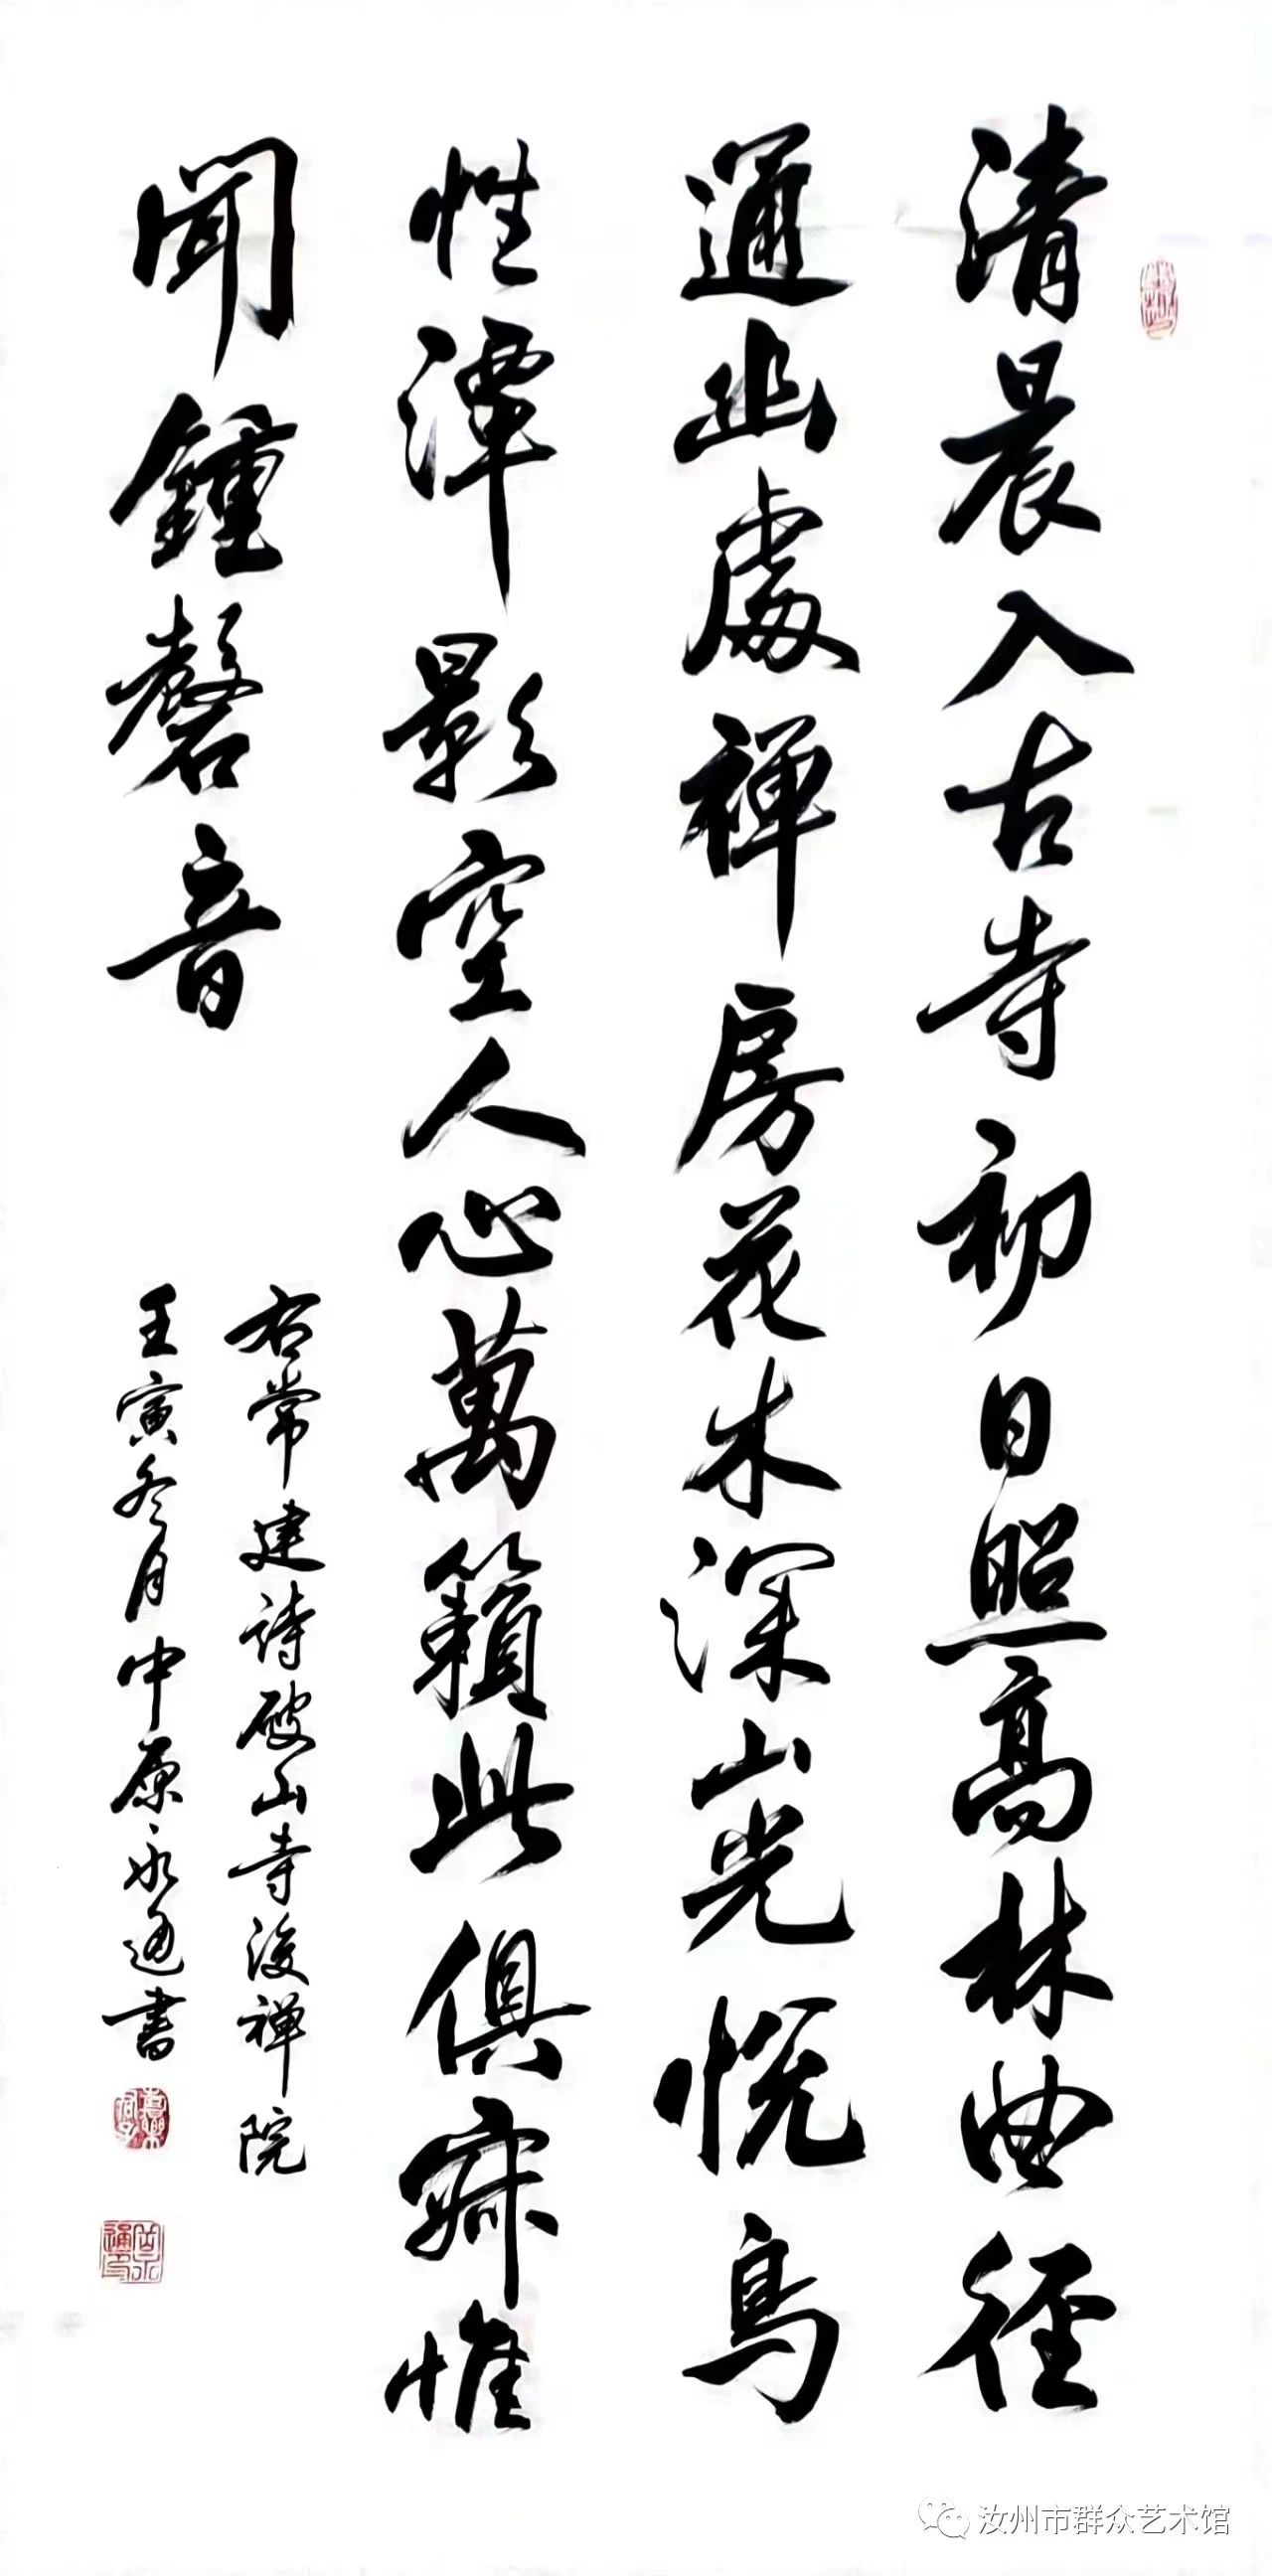 清晨入古寺初日照高林曲径
通幽處禅房花木深山光悦鳥
性潭影空人心萬籟此俱寂惟
聞鍾磬音
右常建詩破山寺後禅院
壬寅冬月中原永通書
汝州市群众艺术馆